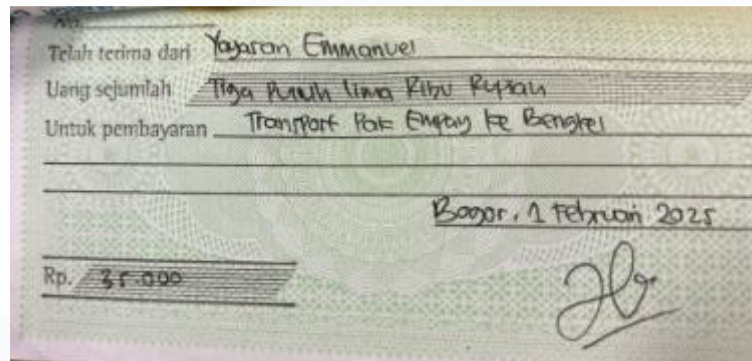 No.
Telah terima dari Yayasan Emmanuel
Uang sejumlah Tiga Puluh Lima Ribu Rupiah
Untuk pembayaran Transport Pak Empay ke Bengkel
Bogor, 1 Februari 2025
Rp. 35.000